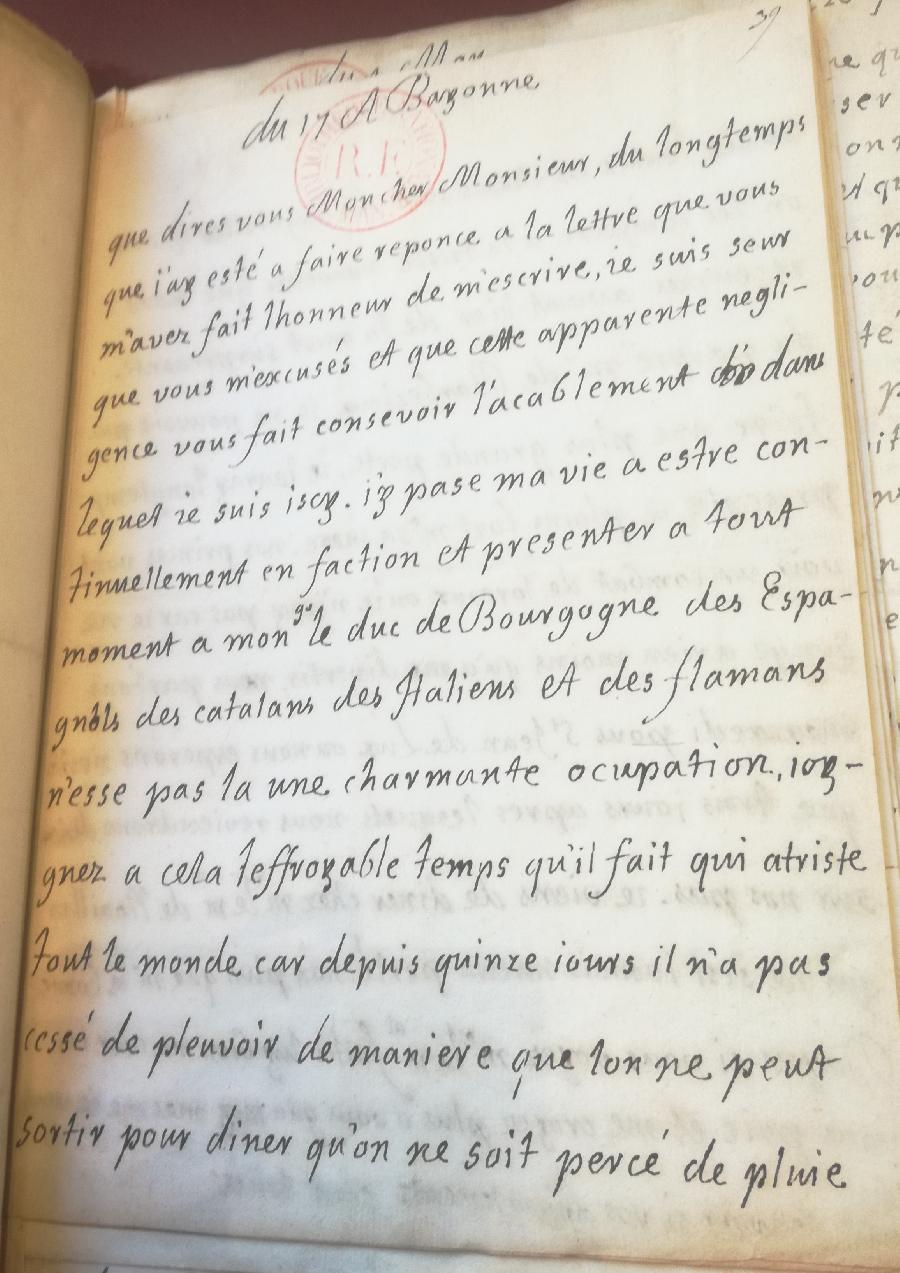 39
du 17 A Bayonne
R.F
que dires vous Mon cher Monsieur, du longtemps
que i'ay esté a faire reponce a la lettre que vous
m'avez fait lhonneur de m'escrire, ie suis seur
que vous m'excusés et que cette apparente negli-
gence vous fait consevoir l'acablement dans
lequel ie suis iscy. i'y pase ma vie a estre con-
tinuellement en faction et presenter a tout
moment a mon gr le duc de Bourgogne des Espa-
gnols des catalans des Italiens et des flamans
n'esse pas la une charmante ocupation, ioy-
gnez a cela leffroyable temps qu'il fait qui atriste
tout le monde car depuis quinze iours il n'a pas
cessé de pleuvoir de maniere que lon ne peut
sortir pour diner qu'on ne soit percé de pluie